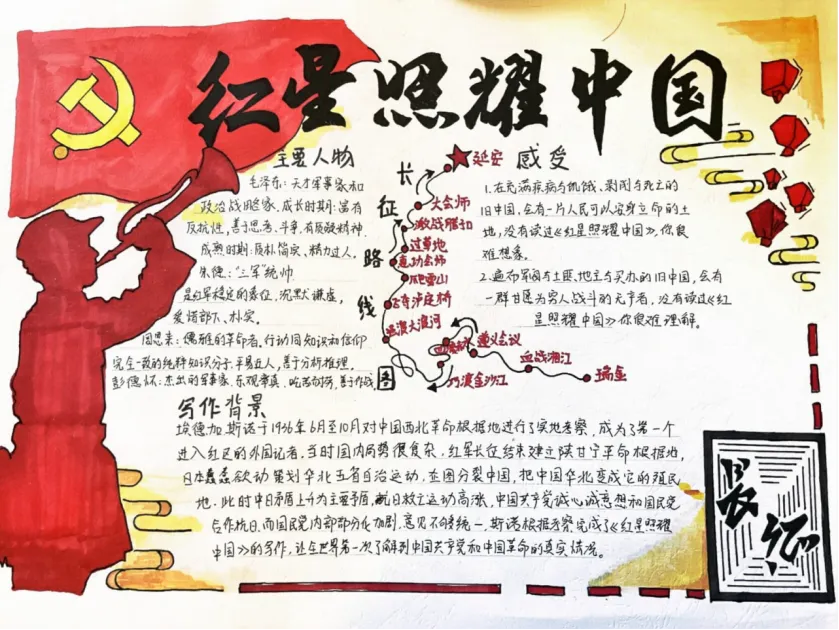 红星照耀中国
主要人物
毛泽东:天才军事家和
政治战略家、成长时期:富有
反抗性,善于思考、斗争,有质疑精神.
成熟时期:质朴简实、精力过人。
朱德:"三军"统帅
是红军稳定的基位,沉默谦虚,
爱惜部下、朴实.
周恩来:儒雅的革命者,行动同知识和信仰
完全一致的纯粹知识分子.平易近人,善于分析推理,
彭德怀:杰出的军事家、乐观率真、吃苦耐劳、善于作战
长征路线图
延安
大会师
激战腊子口
过草地
懋功会师
爬雪山
飞夺泸定桥
强渡大渡河
四渡赤水
遵义会议
巧渡金沙江
血战湘江
瑞金
感受
1.在充满疾病与饥饿、剥削与死亡的
旧中国,会有一片人民可以安身立命的土
地,没有读过《红星照耀中国》,你很
难想象。
2.遍布军阀与土匪、地主与买办的旧中国,会有
一群甘愿为穷人战斗的无产者,没有读过《红
星照耀中国》你很难理解。
写作背景
埃德加·斯诺于1936年6月至10月对中国西北革命根据地进行了实地考察,成为了第一个
进入红区的外国记者。当时国内局势很复杂,红军长征结束建立陕甘宁革命根据地,
日本蠢蠢欲动策划华北五省自治运动,企图分裂中国,把中国华北变成它的殖民
地.此时中日矛盾上升为主要矛盾,抗日救亡运动高涨,中国共产党诚心诚意想和国民党
合作抗日,而国民党内部部分化加剧,意见不能统一.斯诺根据考察完成了《红星照耀
中国》的写作,让全世界第一次了解到中国共产党和中国革命的真实情况。
长征